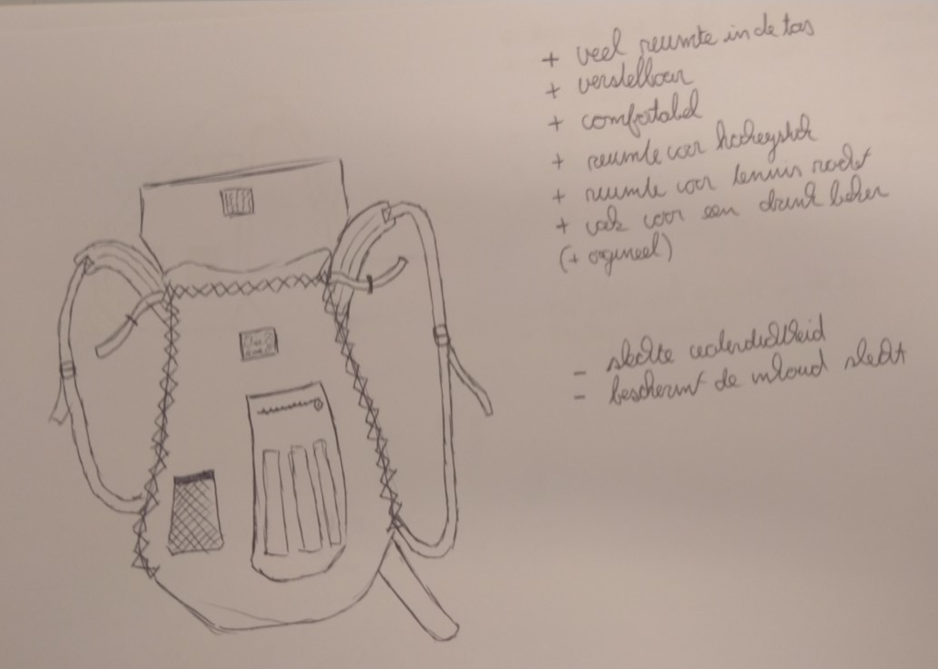 + veel reumte in de tas
+ verstelbaar
+ comfortabel
+ reumte voor hockeystick
+ reumte voor tennis racket
+ vak voor een drink beker
(+ orgineel)
- slechte waterdichtheid
- beschermt de inhoud slecht